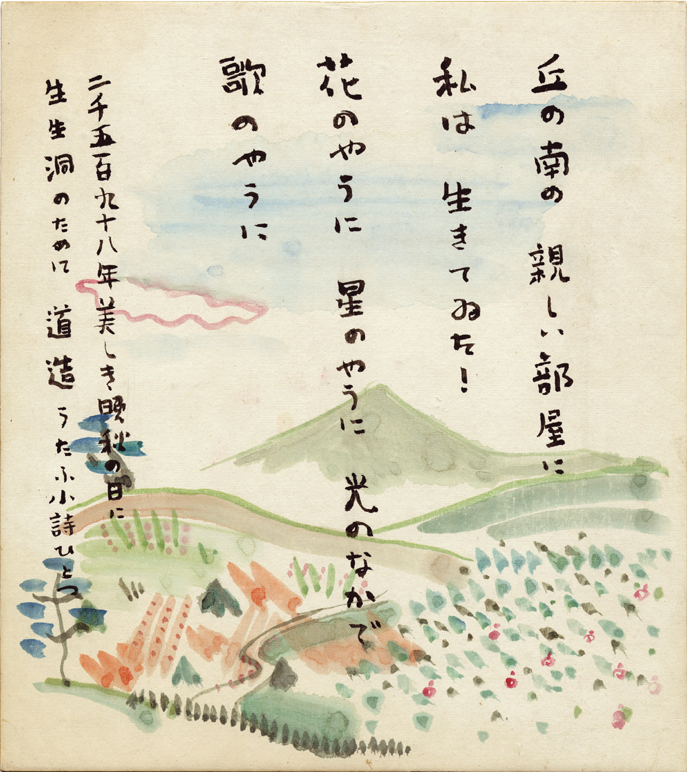 丘の南の　親しい部屋に
私は　生きてゐた！
花のやうに　星のやうに　光のなかで
歌のやうに
二千五百九十八年美しき晩秋の日に
生生洞のために　道造　うたふ小詩ひとつ